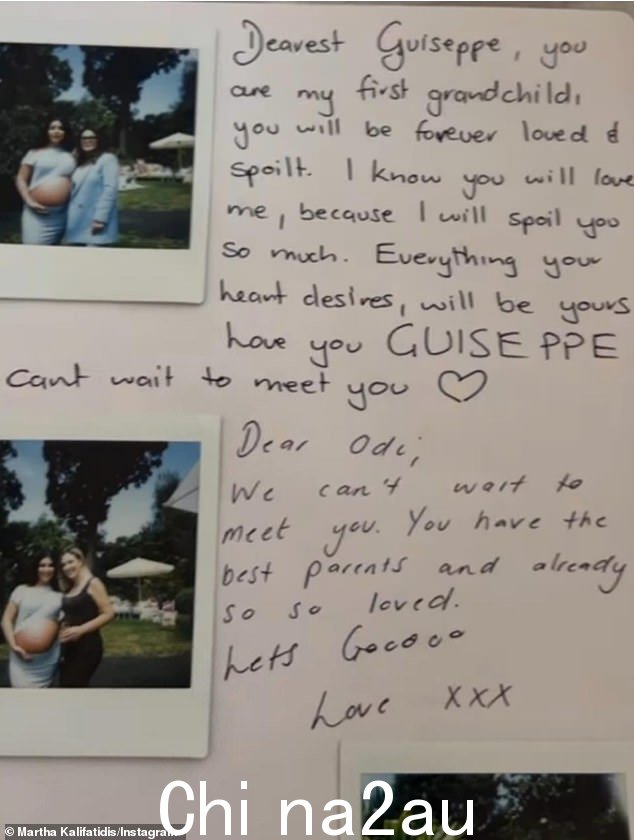 Dearest Guiseppe, you
are my first grandchild,
you will be forever loved &
spoilt. I know you will love
me, because I will spoil you
so much. Everything your
heart desires, will be yours
Love you GUISEPPE
Cant wait to meet you ♡
Dear Odi,
We can't wait to
meet you. You have the
best parents and already
so so loved.
Lets Gooooo
Love XXX
Chi na2au
© Martha Kalifatidis/Instagram